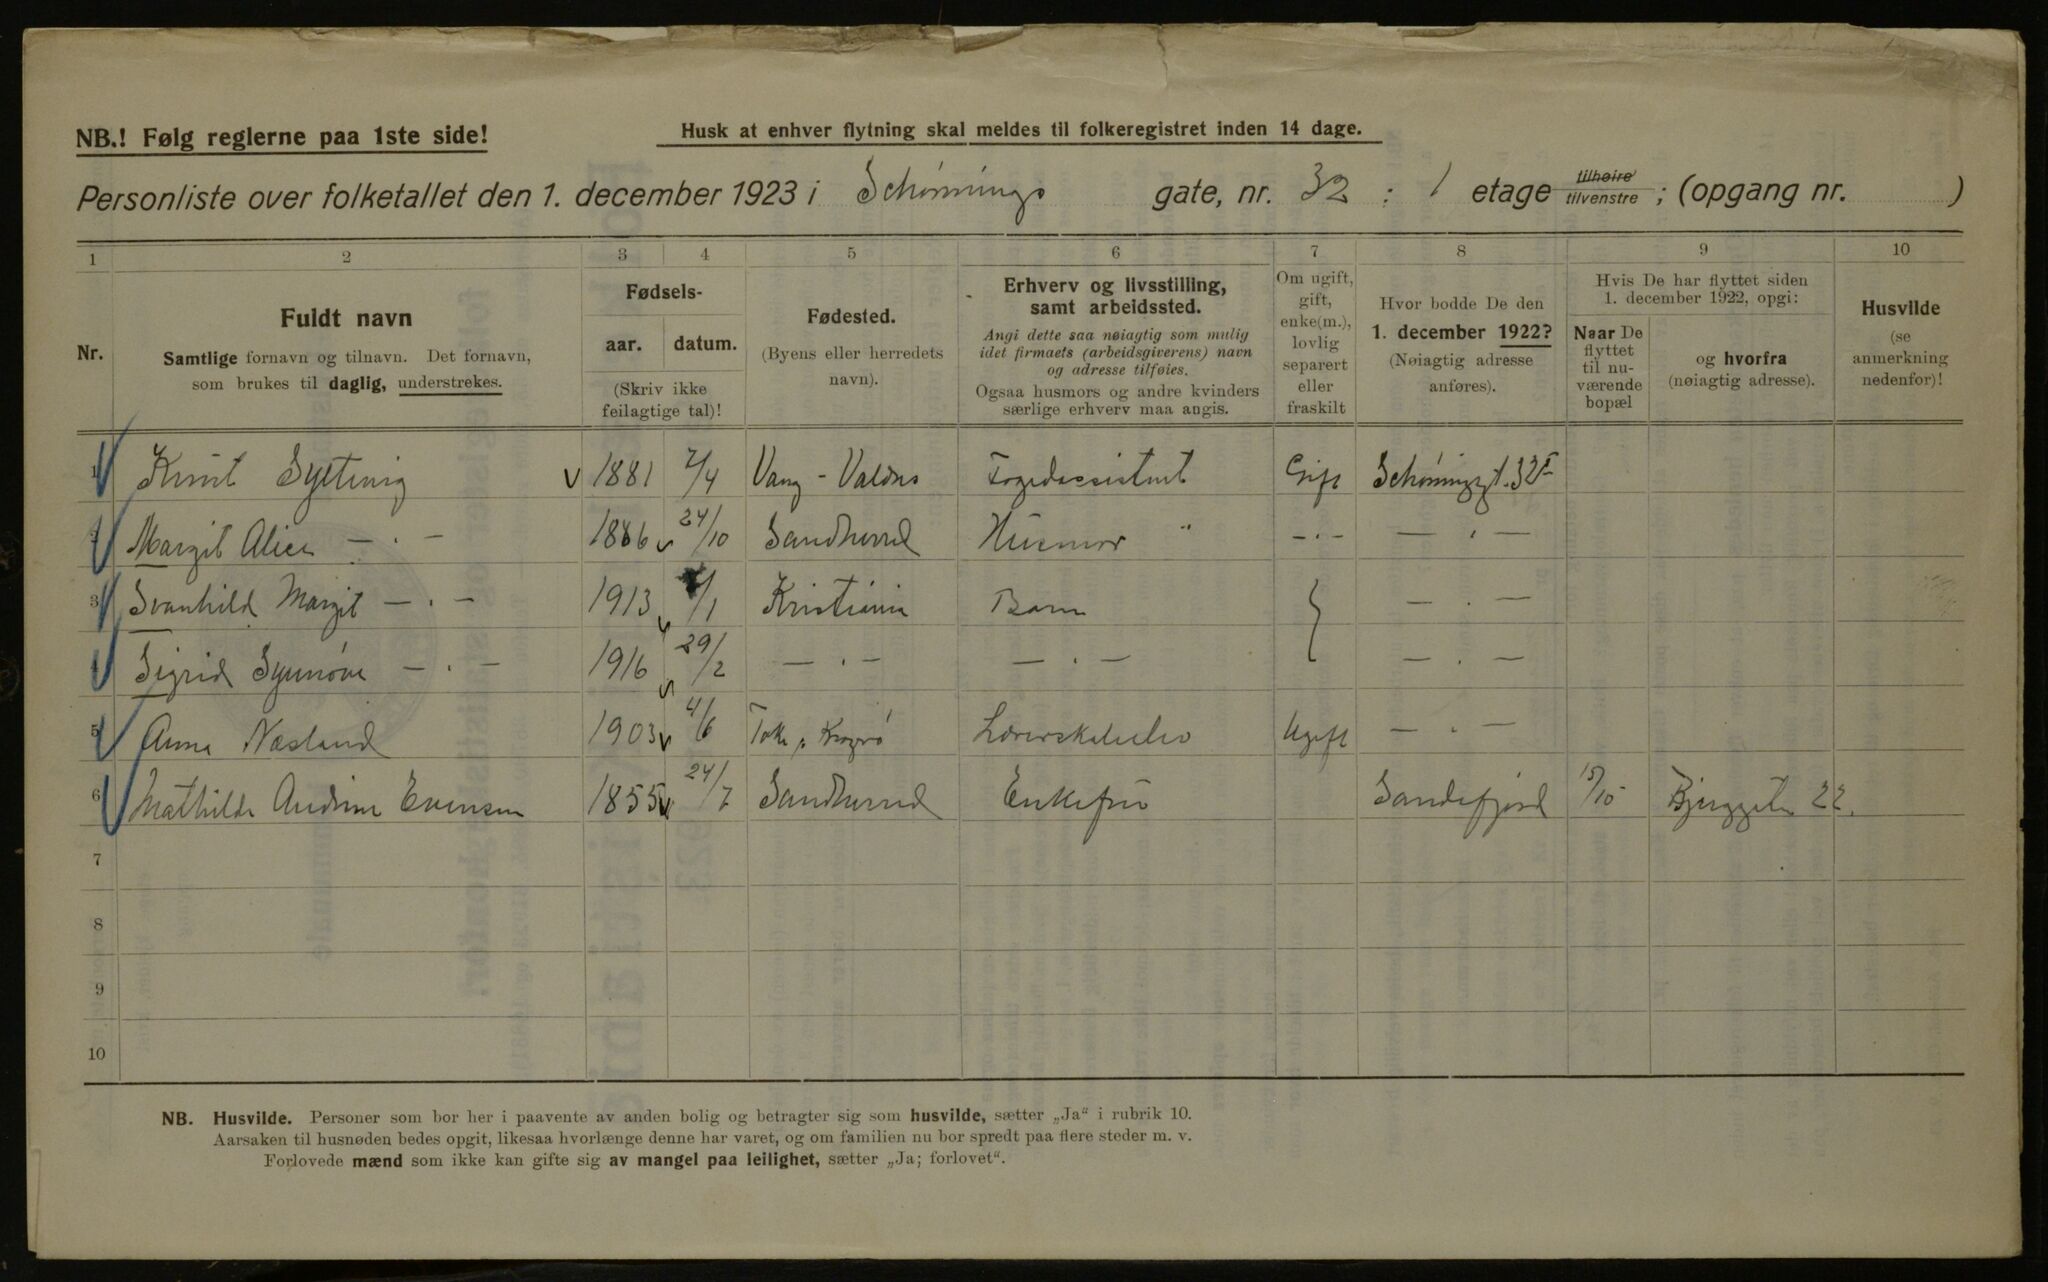 NB.! Følg reglerne paa 1ste side!
Husk at enhver flytning skal meldes til folkeregistret inden 14 dage.
Personliste over folketallet den 1. december 1923 i Schønnings gate, nr. 32 : 1 etage tilhøire tilvenstre ; (opgang nr. )
1 2 3 4 5 6 7 8 9 10
Nr.
Fuldt navn
Samtlige fornavn og tilnavn. Det fornavn,
som brukes til daglig, understrekes.
Fødsels-
aar. datum.
(Skriv ikke
feilagtige tal)!
Fødested.
(Byens eller herredets
navn).
Erhverv og livsstilling,
samt arbeidssted.
Angi dette saa nøiagtig som mulig
idet firmaets (arbeidsgiverens) navn
og adresse tilføies.
Ogsaa husmors og andre kvinders
særlige erhverv maa angis.
Om ugift,
gift,
enke(m.),
lovlig
separert
eller
fraskilt
Hvor bodde De den
1. december 1922?
(Nøiagtig adresse
anføres).
Hvis De har flyttet siden
1. december 1922, opgi:
Naar De
flyttet
til nu-
værende
bopæl
og hvorfra
(nøiagtig adresse).
Husvilde
(se
anmerkning
nedenfor)!
1 Knut 1881 7/4 Vang - Valdres Fogedassistent Gift Schønningsgt. 32 I
2 Margit Alice — " — 1886 24/10 Sandherred Husmor " — " — — " —
3 Svanhild Margit — " — 1913 /1 Kristiania Barn — " —
4 Sigrid Synnøve — " — 1916 29/2 — " — — " — — " —
5 Anna Næsland 1903 4/6 Kragerø Lærerskoleelev Ugift — " —
6 Mathilde Andrine Evensen 1855 24/7 Sandherred Enkefru Sandefjord 15/10 Bjerggaten 22.
7
8
9
10
NB. Husvilde. Personer som bor her i paavente av anden bolig og betragter sig som husvilde, sætter „Ja“ i rubrik 10.
Aarsaken til husnøden bedes opgit, likesaa hvorlænge denne har varet, og om familien nu bor spredt paa flere steder m. v.
Forlovede mænd som ikke kan gifte sig av mangel paa leilighet, sætter „Ja; forlovet“.